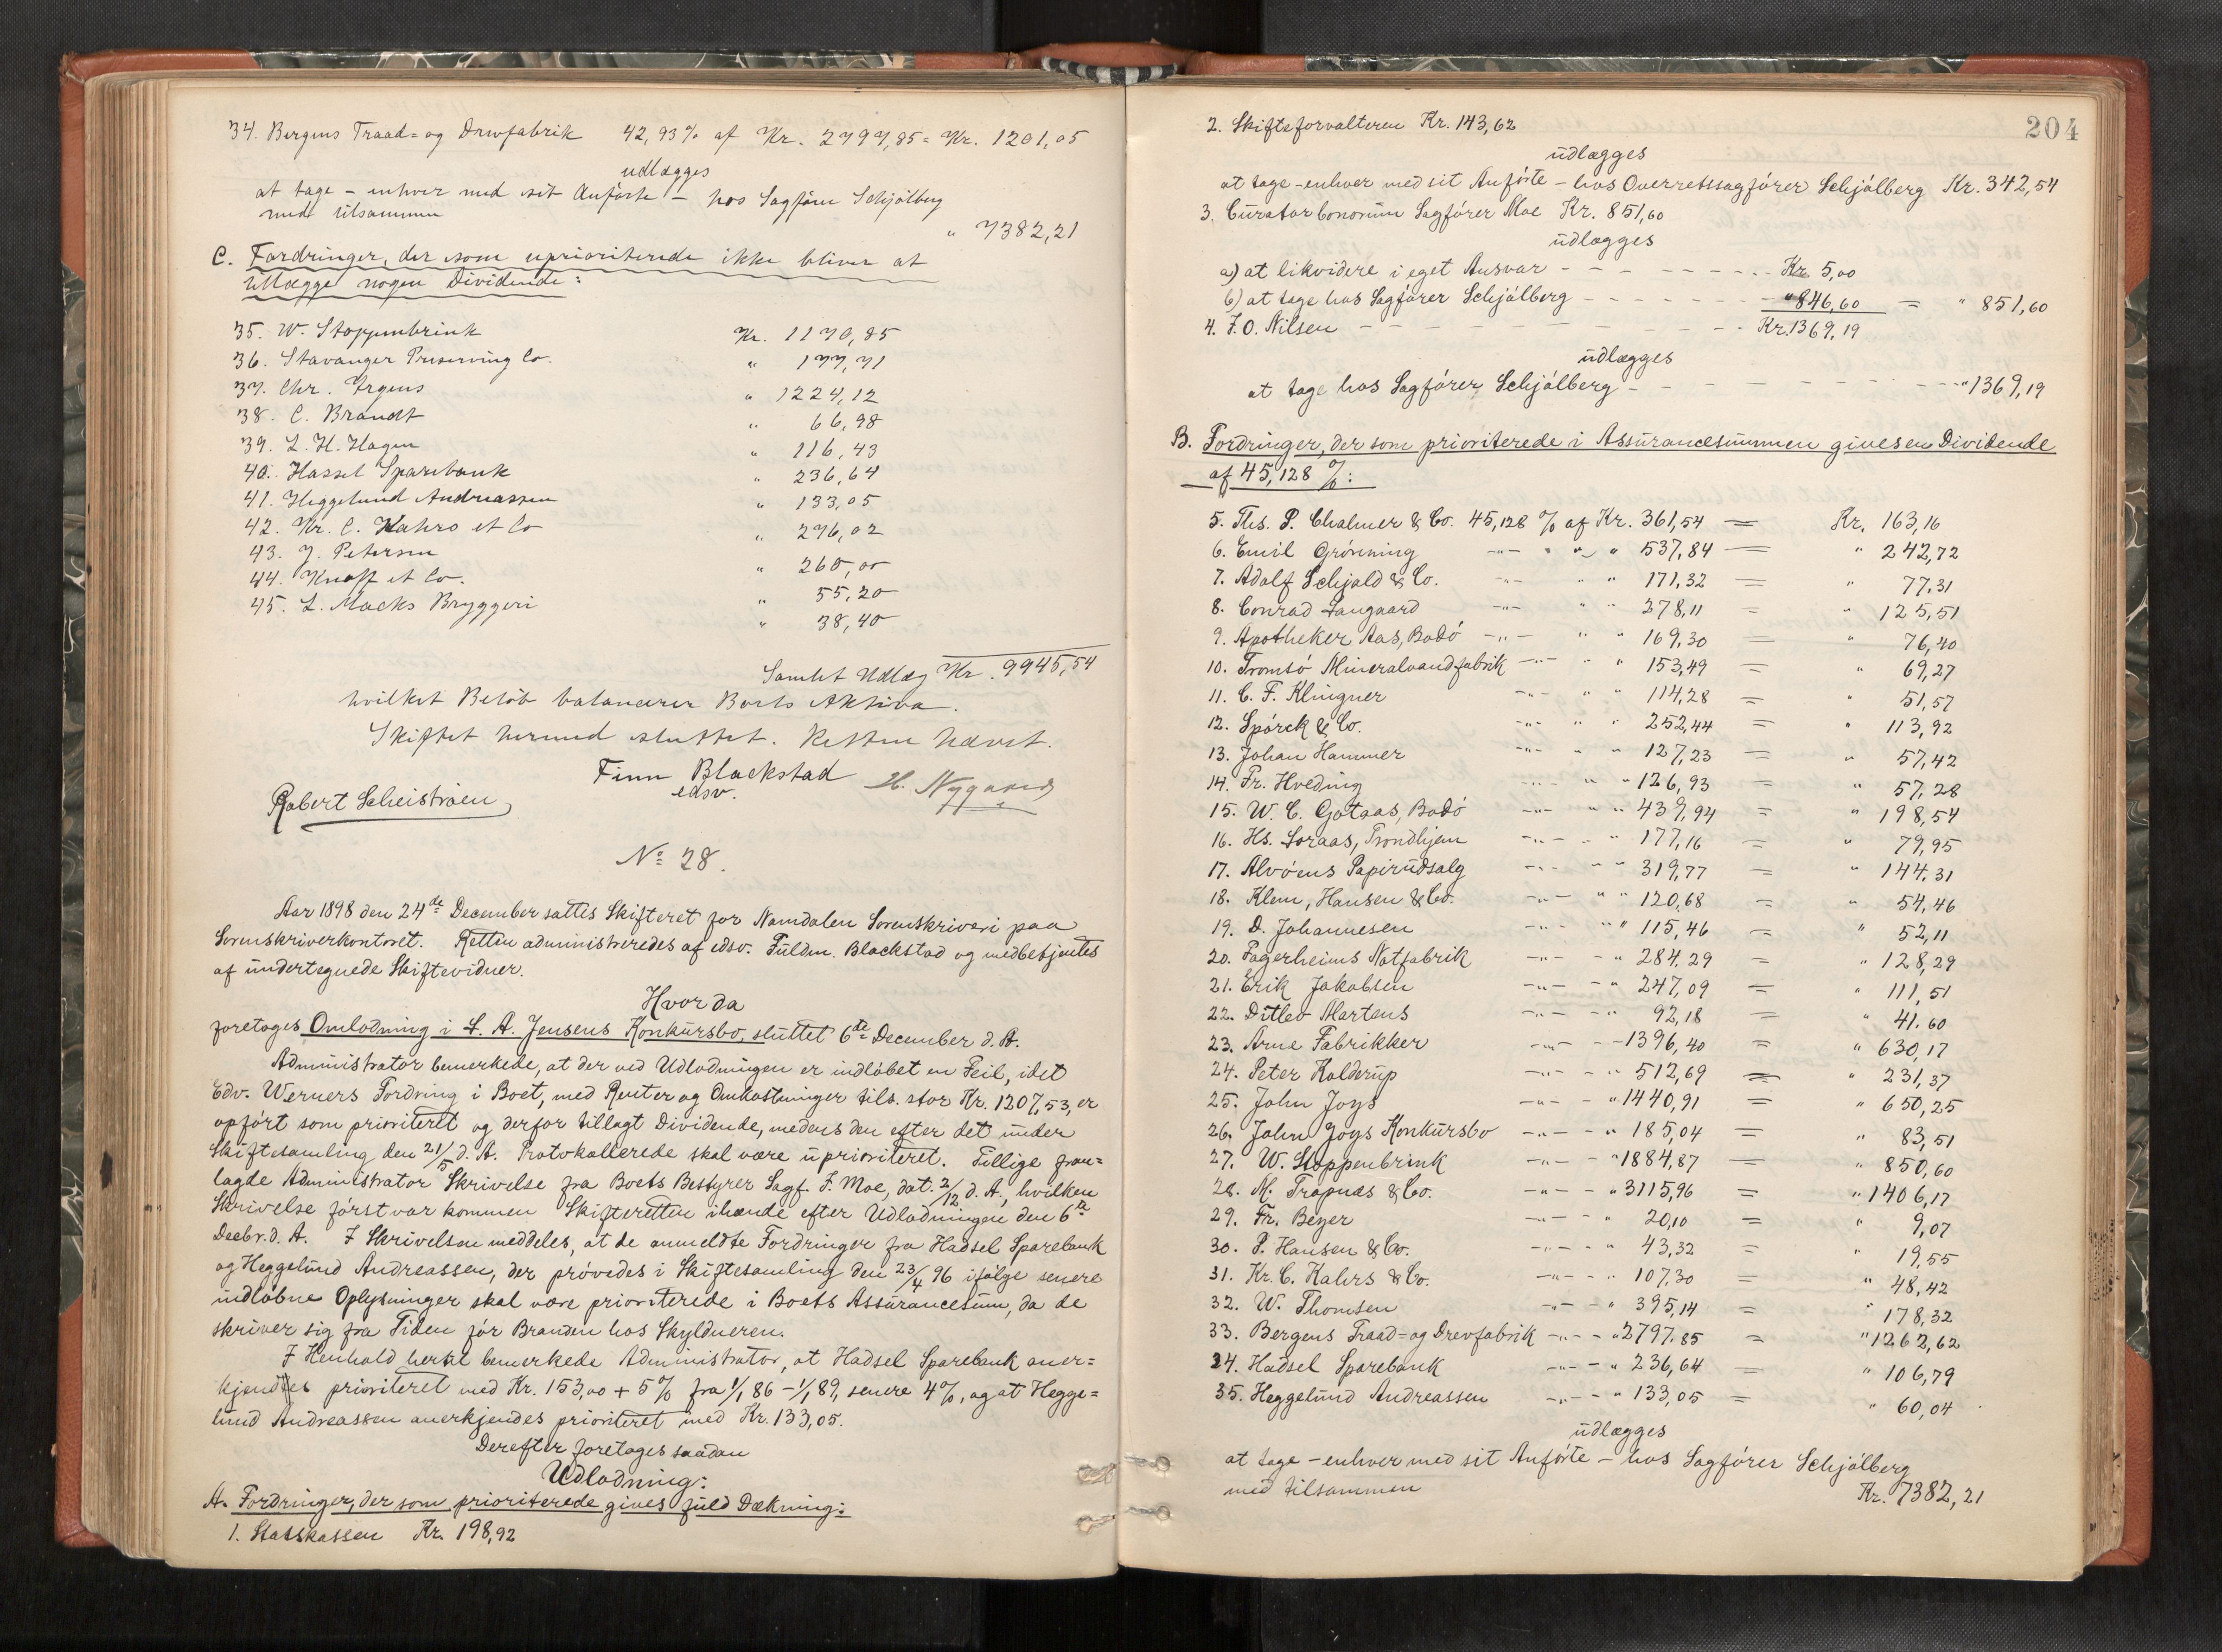 34. Bergens Traad- og Drevfabrik 42,93 % af Kr. 2797,85 = Kr. 1201,05
udlægges
at tage - enhver med sit Anførte - hos Sagfører Schjølberg
med tilsammen
" 7382,21
C. Fordringer, der som uprioriterede ikke bliver at
tillægge nogen Dividende:
35. W. Stoppenbrink Kr. 1170,85
36. Stavanger Preserving Co. " 177,71
37. Chr. Irgens " 1224,12
38. C. Brandt " 66,98
39. L. H. Hagen " 116,43
40. Hassel Sparebank " 236,64
41. Heggelund Andreassen " 133,05
42. Kr. C. Kahrs et Co " 276,02
43. J. Petersen " 260,00
44. Knoff et Co. " 55,20
45. L. Macks Bryggeri " 38,40
Samlet Udlæg Kr. 9945,54
hvilket Beløb balancerer Boets Aktiva.
Skiftet hermed sluttet. Retten hævet.
Finn Blackstad
edsv.
H. Nygaard
Robert Scheistrøen
No 28.
Aar 1898 den 24de December sattes Skifteret for Namdalen Sorenskriveri paa
Sorenskriverkontoret. Retten administreredes af edsv. Fuldm. Blackstad og medbetjentes
af undertegnede Skiftevidner.
Hvor da
foretoges Omlodning i L. A. Jensens Konkursbo, sluttet 6te December d. A.
Administrator bemerkede, at der ved Udlodningen er indløbet en Feil, idet
Edv. Werners Fordring i Boet, med Renter og Omkostninger tils. stor Kr. 1207,53, er
opført som prioriteret og derfor tillagt Dividende, medens den efter det under
Skiftesamling den 21/5 d. A. Protokollerede skal være uprioriteret. Tillige frem=
lagde Administrator Skrivelse fra Boets Bestyrer Sagf. F. Moe, dat. 2/12 d. A., hvilken
Skrivelse først var kommen Skifteretten ihænde efter Udlodningen den 6te
Decbr. d. A. I Skrivelsen meddeles, at de anmeldte Fordringer fra Hadsel Sparebank
og Heggelund Andreassen, der prøvedes i Skiftesamling den 23/4 96 ifølge senere
indløbne Oplysninger skal være prioriterede i Boets Assurancesum, da de
skriver sig fra Tiden før Branden hos Skyldneren.
I Henhold hertil bemerkede Administrator, at Hadsel Sparebank aner=
kjendtes prioriteret med Kr. 153,00 + 5 % fra 1/1 86 - 1/1 89, senere 4 %, og at Hegge=
lund Andreassen anerkjendes prioriteret med Kr. 133,05.
Derefter foretoges saadan
Udlodning:
A. Fordringer, der som prioriterede gives fuld Dækning:
1. Statskassen Kr. 198,92
204
2. Skifteforvalteren Kr. 143,62
udlægges
at tage - enhver med sit Anførte - hos Overretssagfører Schjølberg Kr. 342,54
3. Curator bonorum Sagfører Moe Kr. 851,60
udlægges
a) at likvidere i eget Ansvar - - - - - - - Kr. 5,00
b) at tage hos Sagfører Schjølberg - - - - - - - " 846,60 = " 851,60
4. J. O. Nilsen - - - - - - - - - - Kr. 1369,19
udlægges
at tage hos Sagfører Schjølberg - - - - - - - - - - " 1369,19
B. Fordringer, der som prioriterede i Assurancesummen gives en Dividende
af 45,128 %:
5. Ths. P. Chalmer & Co. 45,128 % af Kr. 361,54 = Kr. 163,16
6. Emil Grønning -"- " " " 537,84 = " 242,72
7. Adolf Schjald & Co. -"- " " 171,32 = " 77,31
8. Conrad Langaard -"- " " 278,11 = " 125,51
9. Apotheker Aas, Bodø -"- " " 169,30 = " 76,40
10. Tromsø Mineralvandfabrik -"- " " 153,49 = " 69,27
11. C. F. Klingner -"- " " 114,28 = " 51,57
12. Spörck & Co. -"- " " 252,44 = " 113,92
13. Johan Hammer -"- " " 127,23 = " 57,42
14. Fr. Hveding -"- " " 126,93 = " 57,28
15. W. C. Gotaas, Bodø -"- " " 439,94 = " 198,54
16. Hs. Loraas, Trondhjem -"- - " 177,16 = " 79,95
17. Alvøens Papirudsalg -"- " " 319,77 = " 144,31
18. Klem, Hansen & Co. -"- " " 120,68 = " 54,46
19. D. Johannesen -"- " " 115,46 = " 52,11
20. Fagerheims Notfabrik -"- - " 284,29 = " 128,29
21. Erik Jakobsen -"- - " 247,09 = " 111,51
22. Ditlev Martens -"- - " 92,18 = " 41,60
23. Arne Fabrikker -"- - - 1396,40 = " 630,17
24. Peter Kolderup -"- - " 512,69 = " 231,37
25. John Joys -"- - " 1440,91 = " 650,25
26. John Joys Konkursbo -"- - " 185,04 = " 83,51
27. W. Stoppenbrink -"- - " 1884,87 = " 850,60
28. M. Trapnæs & Co. -"- - " 3115,96 = " 1406,17
29. Fr. Beyer -"- - " 20,10 = " 9,07
30. P. Hansen & Co. -"- - " 43,32 = " 19,55
31. Kr. C. Kahrs & Co. -"- - " 107,30 = " 48,42
32. W. Thomsen -"- - " 395,14 = " 178,32
33. Bergens Traad- og Drevfabrik -"- - " 2797,85 = " 1262,62
34. Hadsel Sparebank -"- - " 236,64 = " 106,79
35. Heggelund Andreassen -"- - " 133,05 = " 60,04
udlægges
at tage - enhver med sit Anførte - hos Sagfører Schjølberg
med tilsammen Kr. 7382,21